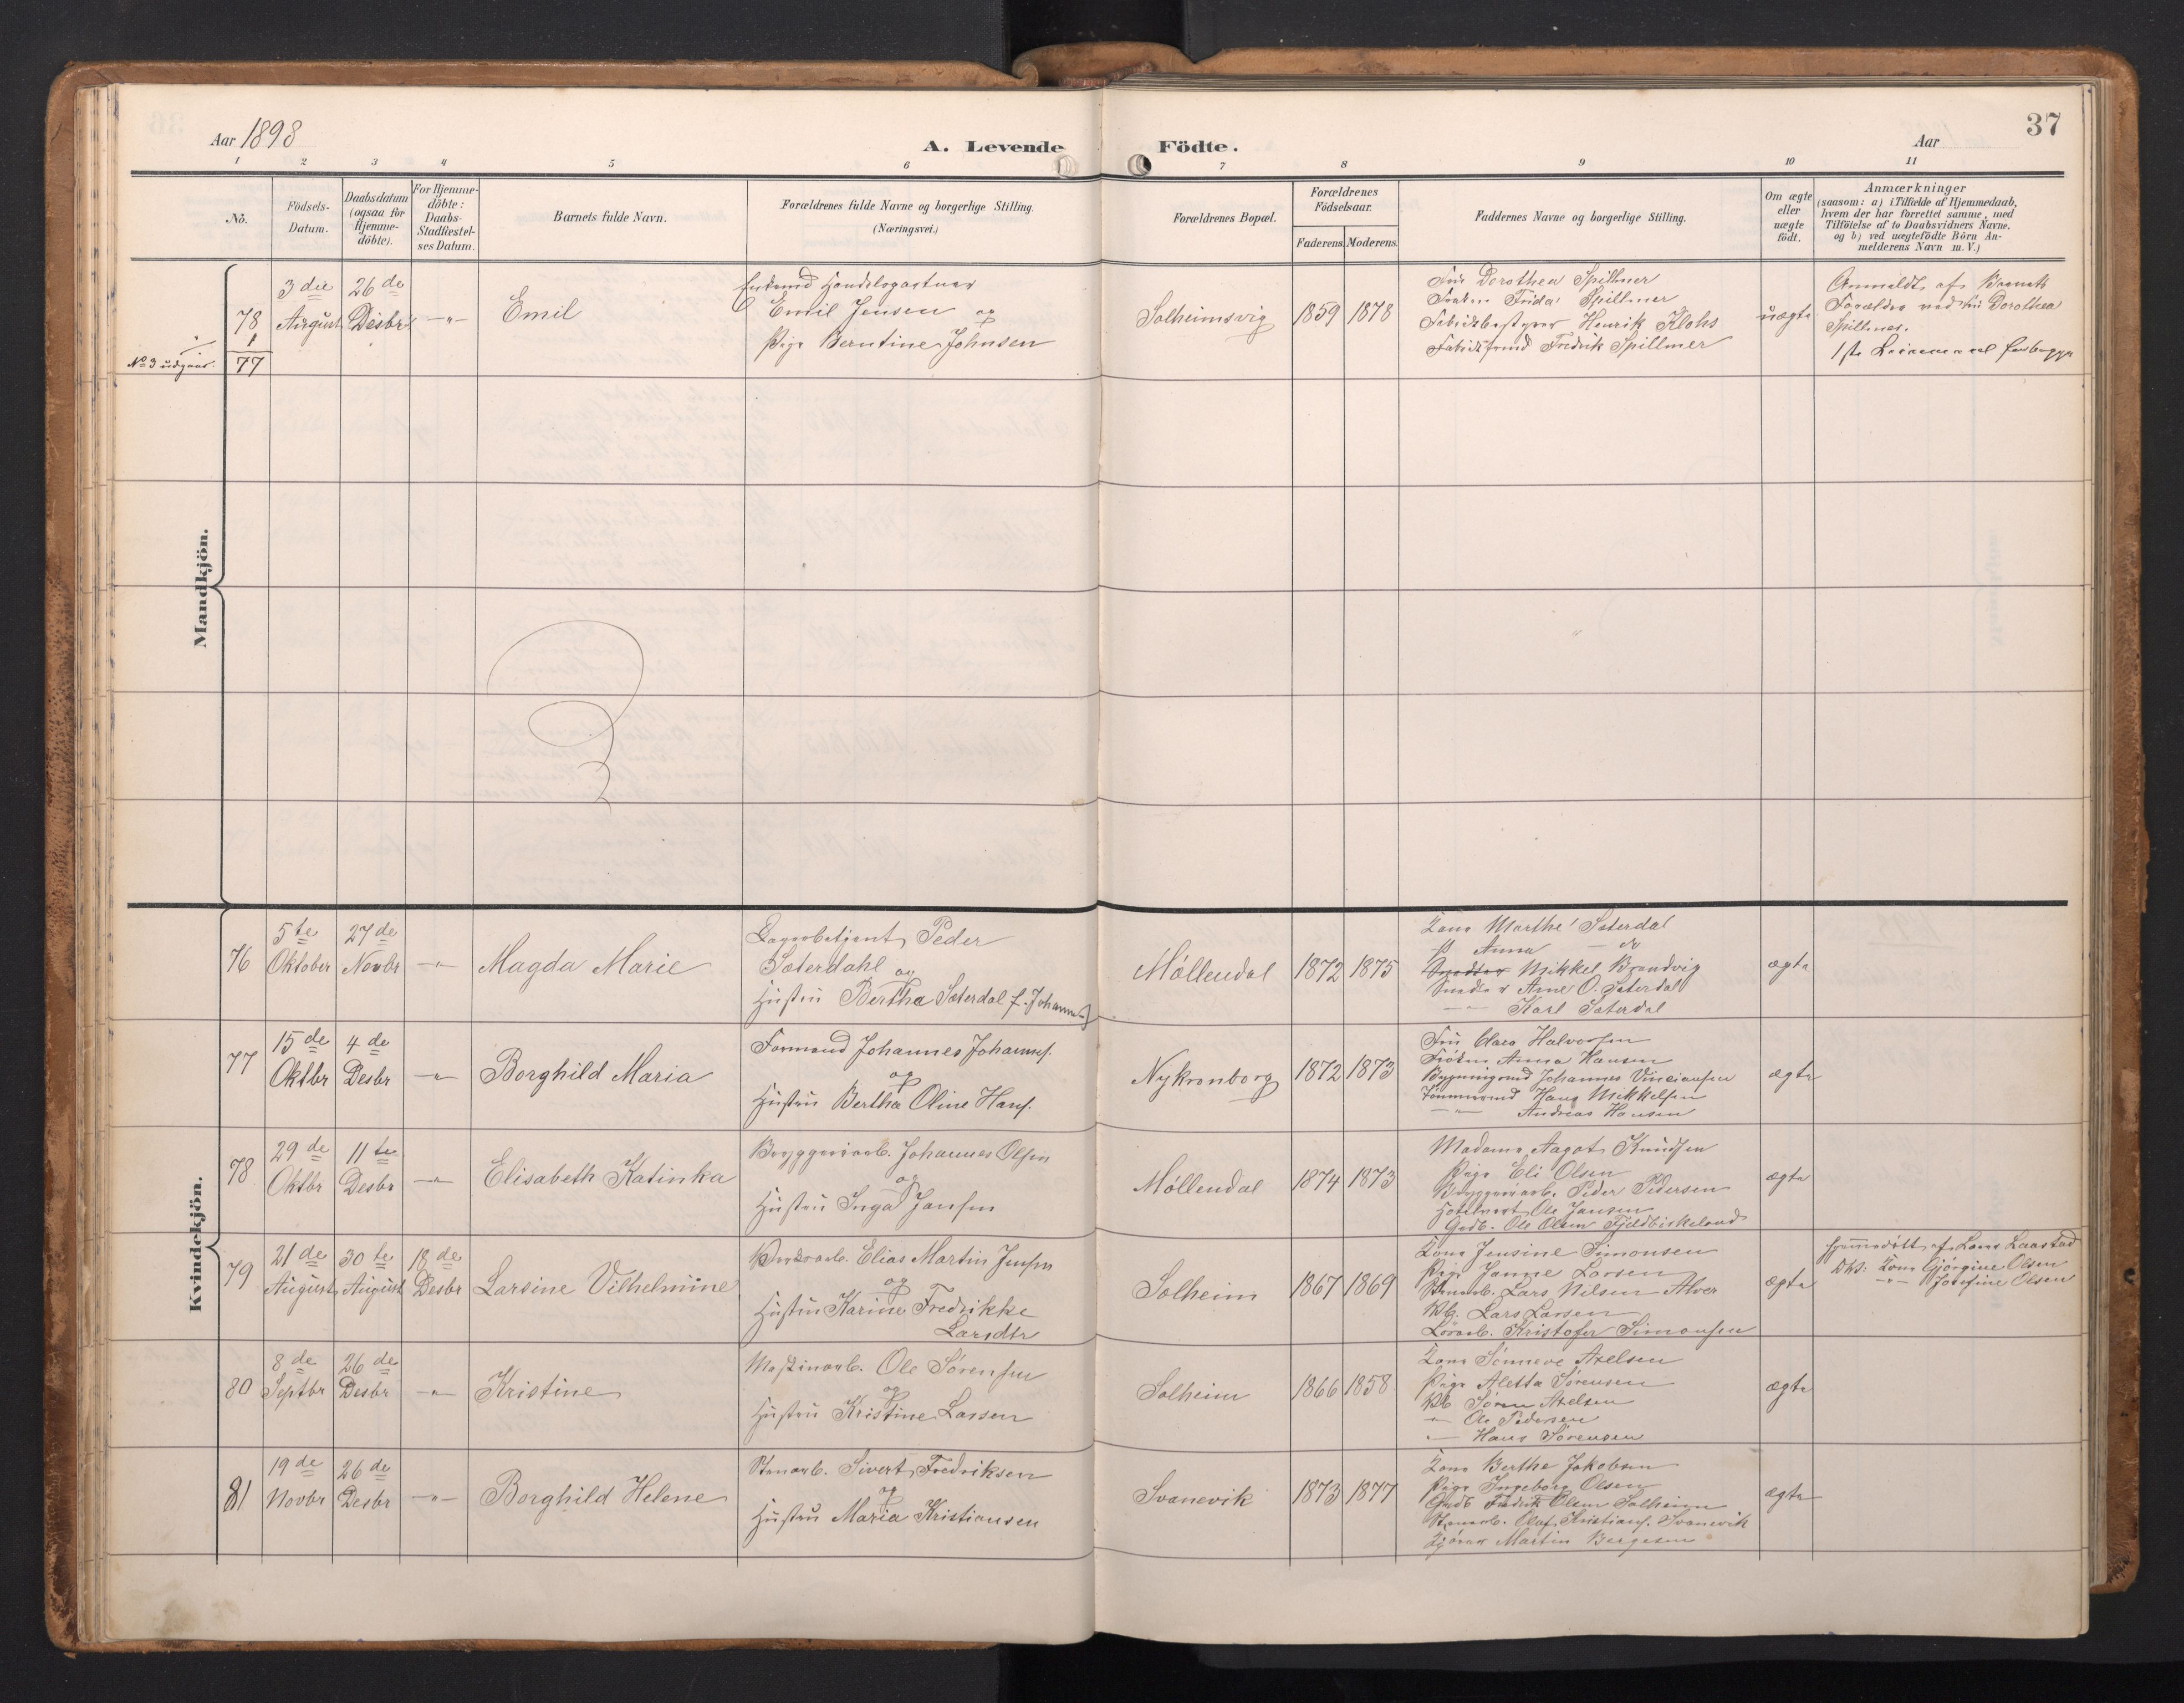 37
Aar 1898
A. Levende Födte.
Aar
1 2 3 4 5 6 7 8 9 10 11
Nô.
Födsels-Datum.
Daabsdatum (ogsaa for Hjemme-döbte).
For Hjemme-döbte: Daabs-Stadfæstel-ses Datum.
Barnets fulde Navn.
Forældrenes fulde Navne og borgerlige Stilling. (Næringsvei.)
Forældrenes Bopæl.
Forældrenes Födselsaar.
Faderens. Moderens.
Faddernes Navne og borgerlige Stilling.
Om ægte eller uægte födt.
Anmærkninger (saasom: a) i Tilfælde af Hjemmedaab, hvem der har forrettet samme, med Tilföielse af to Daabsvidners Navne. og b) ved uægtefödte Börn An-melderens Navn m. V.)
Mandkjön.
78
1
No 3 udgaar. 77
3die August
26de Desbr
—"—
Emil
Enkemd Handelsgartner
Emil Jensen og
Pige Berntine Johnsen
Solheimsvig
1859 1878
Fru Dorothea Spillmer
Frøken Frida Spillmer
Fabrikbestyrer Henrik Klohs
Fredrik Spillmer
uægte
Anmeldt af Barnets
Forældre ved fru Dorothea
Spillmer.
1ste Leiermaal for begge
Kvindekjön.
76
5te Oktober
27de Novbr
—"—
Magda Marie
Peder
Sæterdahl og
Hustru Bertha Sæterdal f. Johannes
Møllendal
1872 1875
Kone Marthe Sæterdal
P. Anna — do
Mikkel Brandvig
Arne O. Sæterdal
—"— Karl Sæterdal
ægte
77
15de Oktbr
4de Desbr
—"—
Borghild Maria
Formand Johannes Johannes.
og
Hustru Bertha Oline Hans.
Nykronborg
1872 1873
Fru Clara Halvorsen
Frøken Anna Hansen
Bygningsmd Johannes
Tømmermd Hans Mikkelsen
—"— Andreas Hansen
ægte
78
29de Oktbr
11te Desbr
—"—
Elisabeth Katinka
Bryggeriarb. Johannes Olsen
og
Hustru Inga Jansen
Møllendal
1874 1873
Madame Aagot Knudsen
Pige Eli Olsen
Bryggeriarb. Peder Pedersen
Ole Jansen
Gadb. Ole Olsen Fjeldbirkeland
ægte
79
21de August
30te August
18de Desbr
Larsine Vilhelmine
Elias Martin Jensen
og
Hustru Karine Fredrikke
Larsdtr
Solheim
1867 1869
Kone Jensine Simonsen
Pige Janne Larsen
Stenarb. Lars Nilsen Alver
Lars Larsen
Kristofer Simonsen
ægte
hjemmedøbt af Lars Laastad
Dv: Kone Gjørgine Olsen
—"— Josefine Olsen
80
8de Septbr
26de Desbr
—"—
Kristine
Maskinarb. Ole Sørensen
og
Hustru Kristine Larsen
Solheim
1866 1858
Kone Sønneve Axelsen
Pige Aletta Sørensen
Søren Axelsen
—"— Ole Pedersen
—"— Hans Sørensen
ægte
81
19de Novbr
26de Desbr
—"—
Borghild Helene
Stenarb. Sivert Fredriksen
og
Hustru Maria Kristiansen
Svanevik
1873 1877
Kone Berthe Jakobsen
Pige Ingeborg Olsen
Gadb Fredrik Olsen Solheim
Stenarb. Olaf Kristians. Svanevik
Kjører Martin Bergesen
ægte